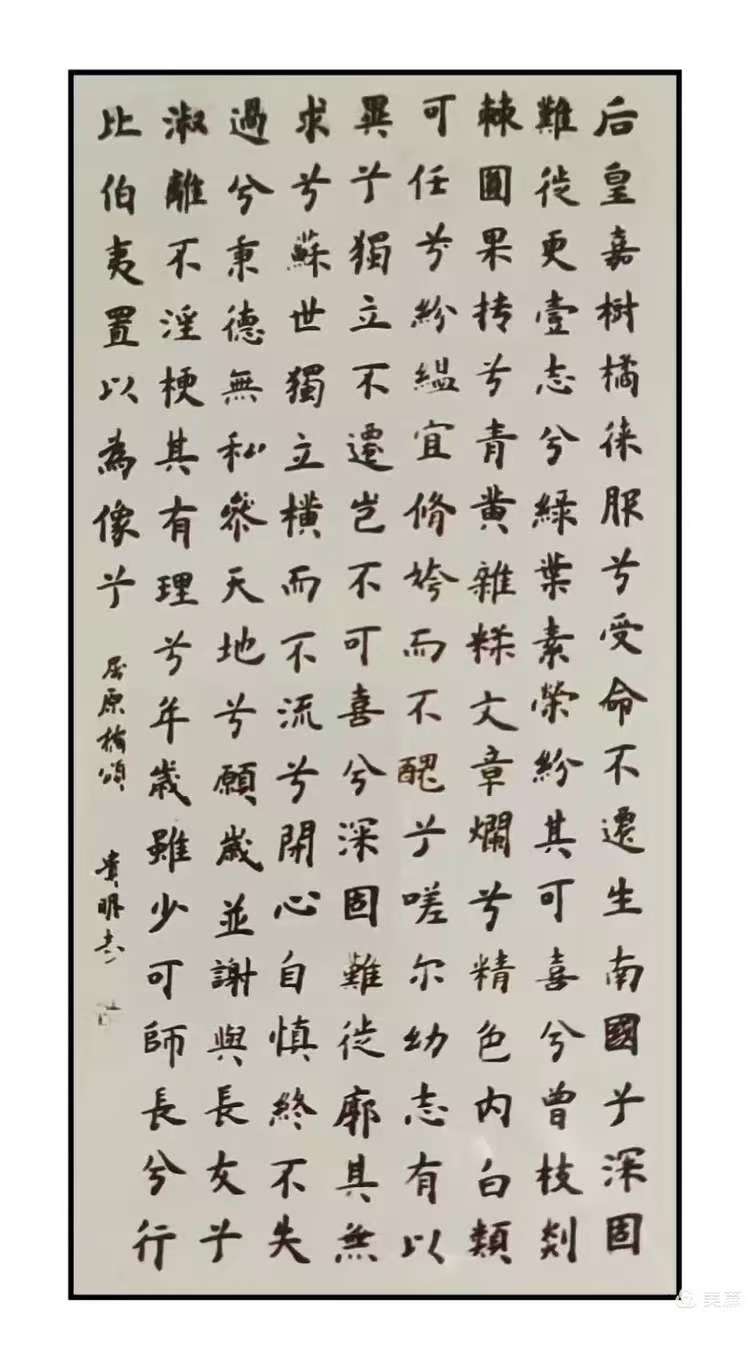 后皇嘉樹橘徠服兮受命不遷生南國兮深固
難徙更壹志兮綠葉素榮紛其可喜兮曾枝剡
棘圓果摶兮青黃雜糅文章爛兮精色內白類
可任兮紛緼宜脩姱而不醜兮嗟尔幼志有以
異兮獨立不遷岂不可喜兮深固難徙廓其無
求兮蘇世獨立橫而不流兮閉心自慎終不失
過兮秉德無私參天地兮願歲並謝與長友兮
淑離不淫梗其有理兮年歲雖少可師長兮行
比伯夷置以為像兮 屈原橘頌 貴明書
美篇